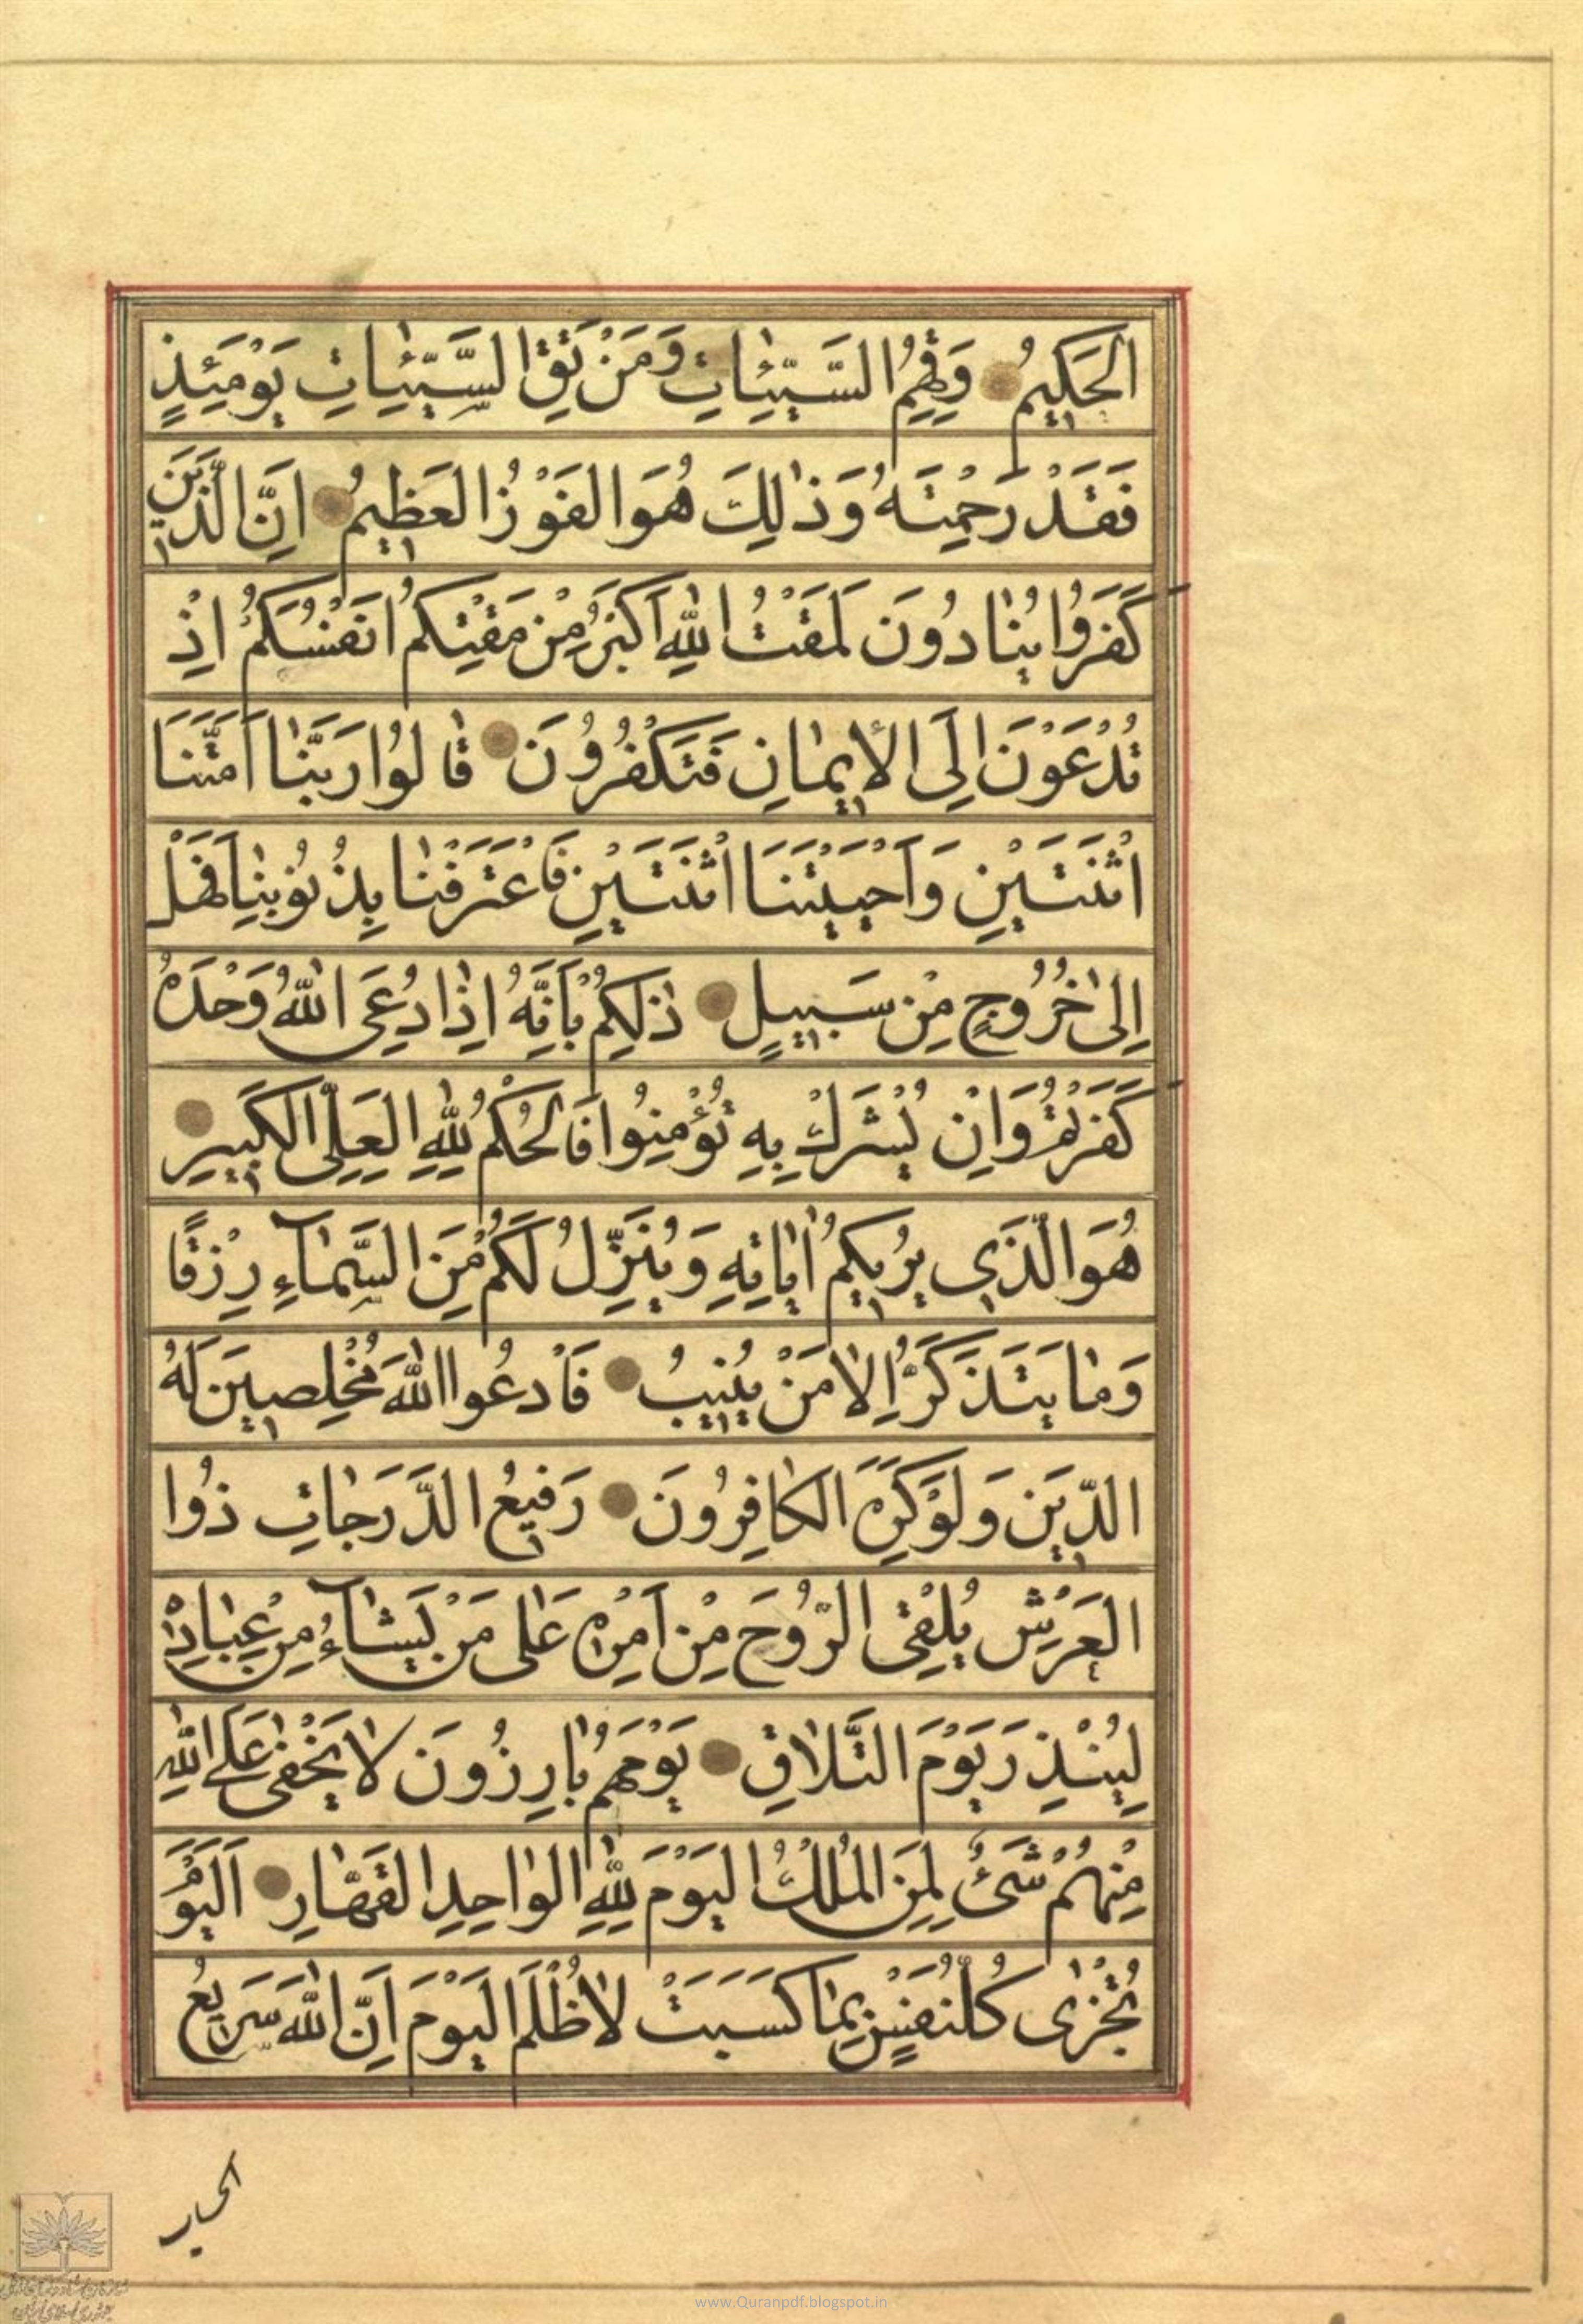 الحَكِيمُ وَقِهِمُ السَّيِّئٰاتِ وَمَنْ تَقِ السَّيِّئٰاتِ يَوْمَئِذٍ
فَقَدْ رَحِمْتَهُ وَذٰلِكَ هُوَ الفَوْزُ العَظِيمُ اِنَّ الَّذِينَ
كَفَرُوا يُنٰادَوْنَ لَمَقْتُ اللّٰهِ اَكْبَرُ مِنْ مَقْتِكُمْ اَنْفُسَكُمْ اِذْ
تُدْعَوْنَ اِلَى الْإِيمٰانِ فَتَكْفُرُونَ قٰالُوا رَبَّنٰا اَمَتَّنَا
اثْنَتَيْنِ وَاَحْيَيْتَنَا اثْنَتَيْنِ فَاعْتَرَفْنٰا بِذُنُوبِنٰا فَهَلْ
اِلىٰ خُرُوجٍ مِنْ سَبِيلٍ ذٰلِكُمْ بِاَنَّهُ اِذٰا دُعِىَ اللّٰهُ وَحْدَهُ
كَفَرْتُمْ وَاِنْ يُشْرَكْ بِهِ تُؤْمِنُوا فَالحُكْمُ لِلّٰهِ العَلِىِّ الكَبِيرِ
هُوَ الَّذِى يُرِيكُمْ اٰيٰاتِهِ وَيُنَزِّلُ لَكُمْ مِنَ السَّمٰآءِ رِزْقًا
وَمٰا يَتَذَكَّرُ اِلّٰا مَنْ يُنِيبُ فَادْعُوا اللّٰهَ مُخْلِصِينَ لَهُ
الدِّينَ وَلَوْ كَرِهَ الكٰافِرُونَ رَفِيعُ الدَّرَجٰاتِ ذُوا
العَرْشِ يُلْقِى الرُّوحَ مِنْ اَمْرِهِ عَلىٰ مَنْ يَشٰآءُ مِنْ عِبٰادِهِ
لِيُنْذِرَ يَوْمَ التَّلٰاقِ يَوْمَ هُمْ بٰارِزُونَ لٰا يَخْفىٰ عَلَى اللّٰهِ
مِنْهُمْ شَىْءٌ لِمَنِ المُلْكُ اليَوْمَ لِلّٰهِ الوٰاحِدِ القَهّٰارِ اَليَوْمَ
تُجْزىٰ كُلُّ نَفْسٍ بِمٰا كَسَبَتْ لٰا ظُلْمَ اليَوْمَ اِنَّ اللّٰهَ سَرِيعُ
الحساب
www.Quranpdf.blogspot.in